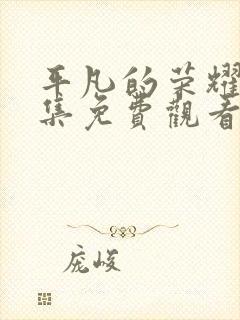 平凡的荣耀
集免費觀看
庞峻